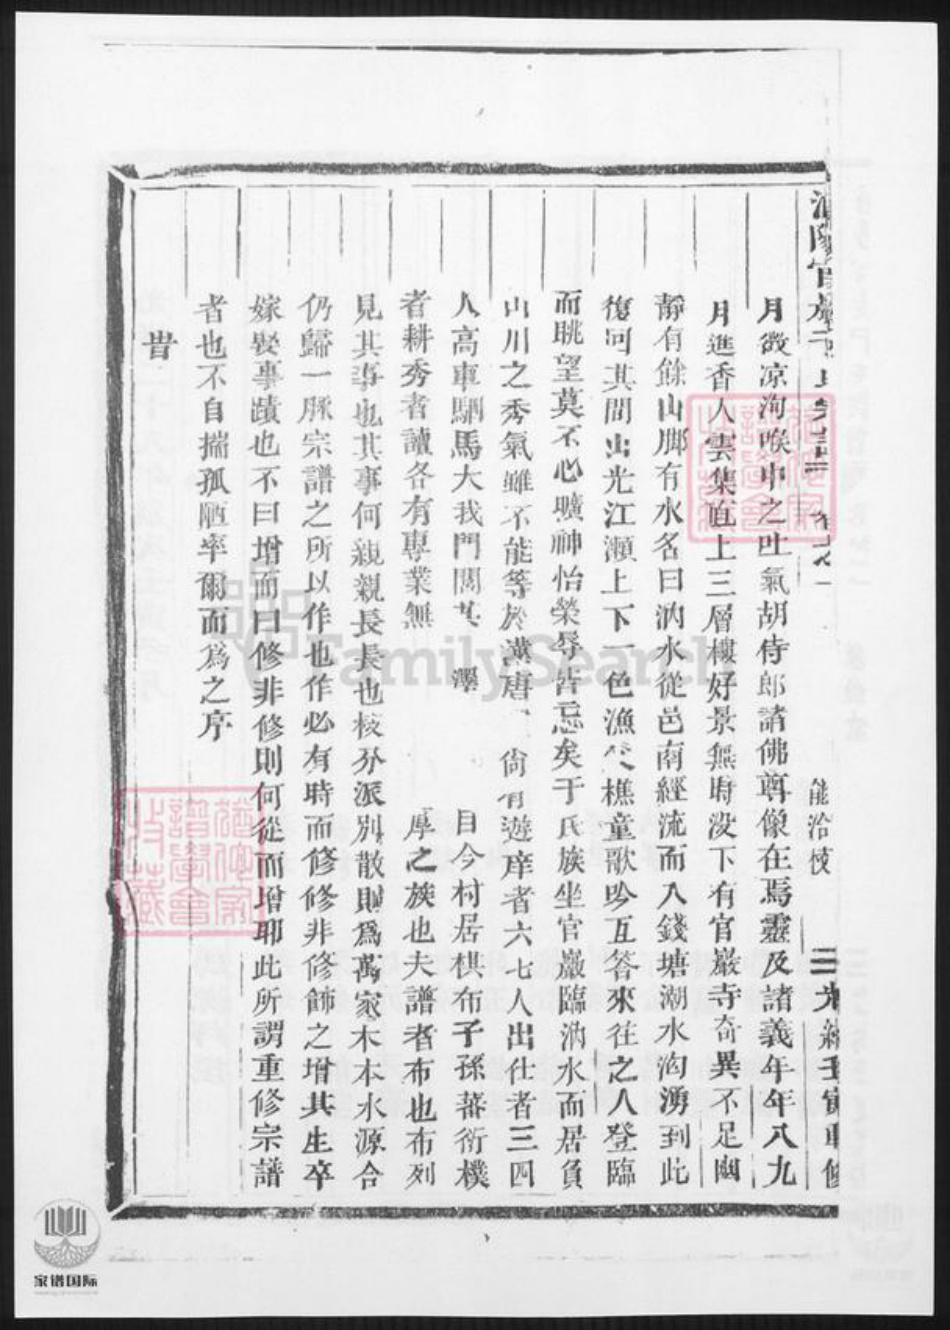 月微凉洵唉中之吐氣胡侍郎諸佛尊像在焉靈及諸義年年八九
月進香人雲集直上三層樓好景無時没下有官巖寺奇異不足幽
靜有餘山脚有水名曰汭水從邑南經流而入錢塘潮水洶湧到此
復回其間出光江瀨上下一色漁父樵童歌吟互答來往之人登臨
而眺望莫不心曠神怡榮辱皆忘矣于氏族坐官巖臨汭水而居負
山川之秀氣雖不能等於漢唐 尙有遊庠者六七人出仕者三四
人高車駟馬大我門閭其 澤 目今村居棋布子孫蕃衍樸
者耕秀者讀各有專業無 厚之族也夫譜者布也布列
見其事也其事何親親長長也核分派別散則爲萬家木本水源合
仍歸一脉宗譜之所以作也作必有時而修修非修飾之增其生卒
嫁娶事蹟也不曰增而曰修非修則何從而增耶此所謂重修宗譜
者也不自揣孤陋率爾而爲之序
旹
家谱国际
FamilySearch